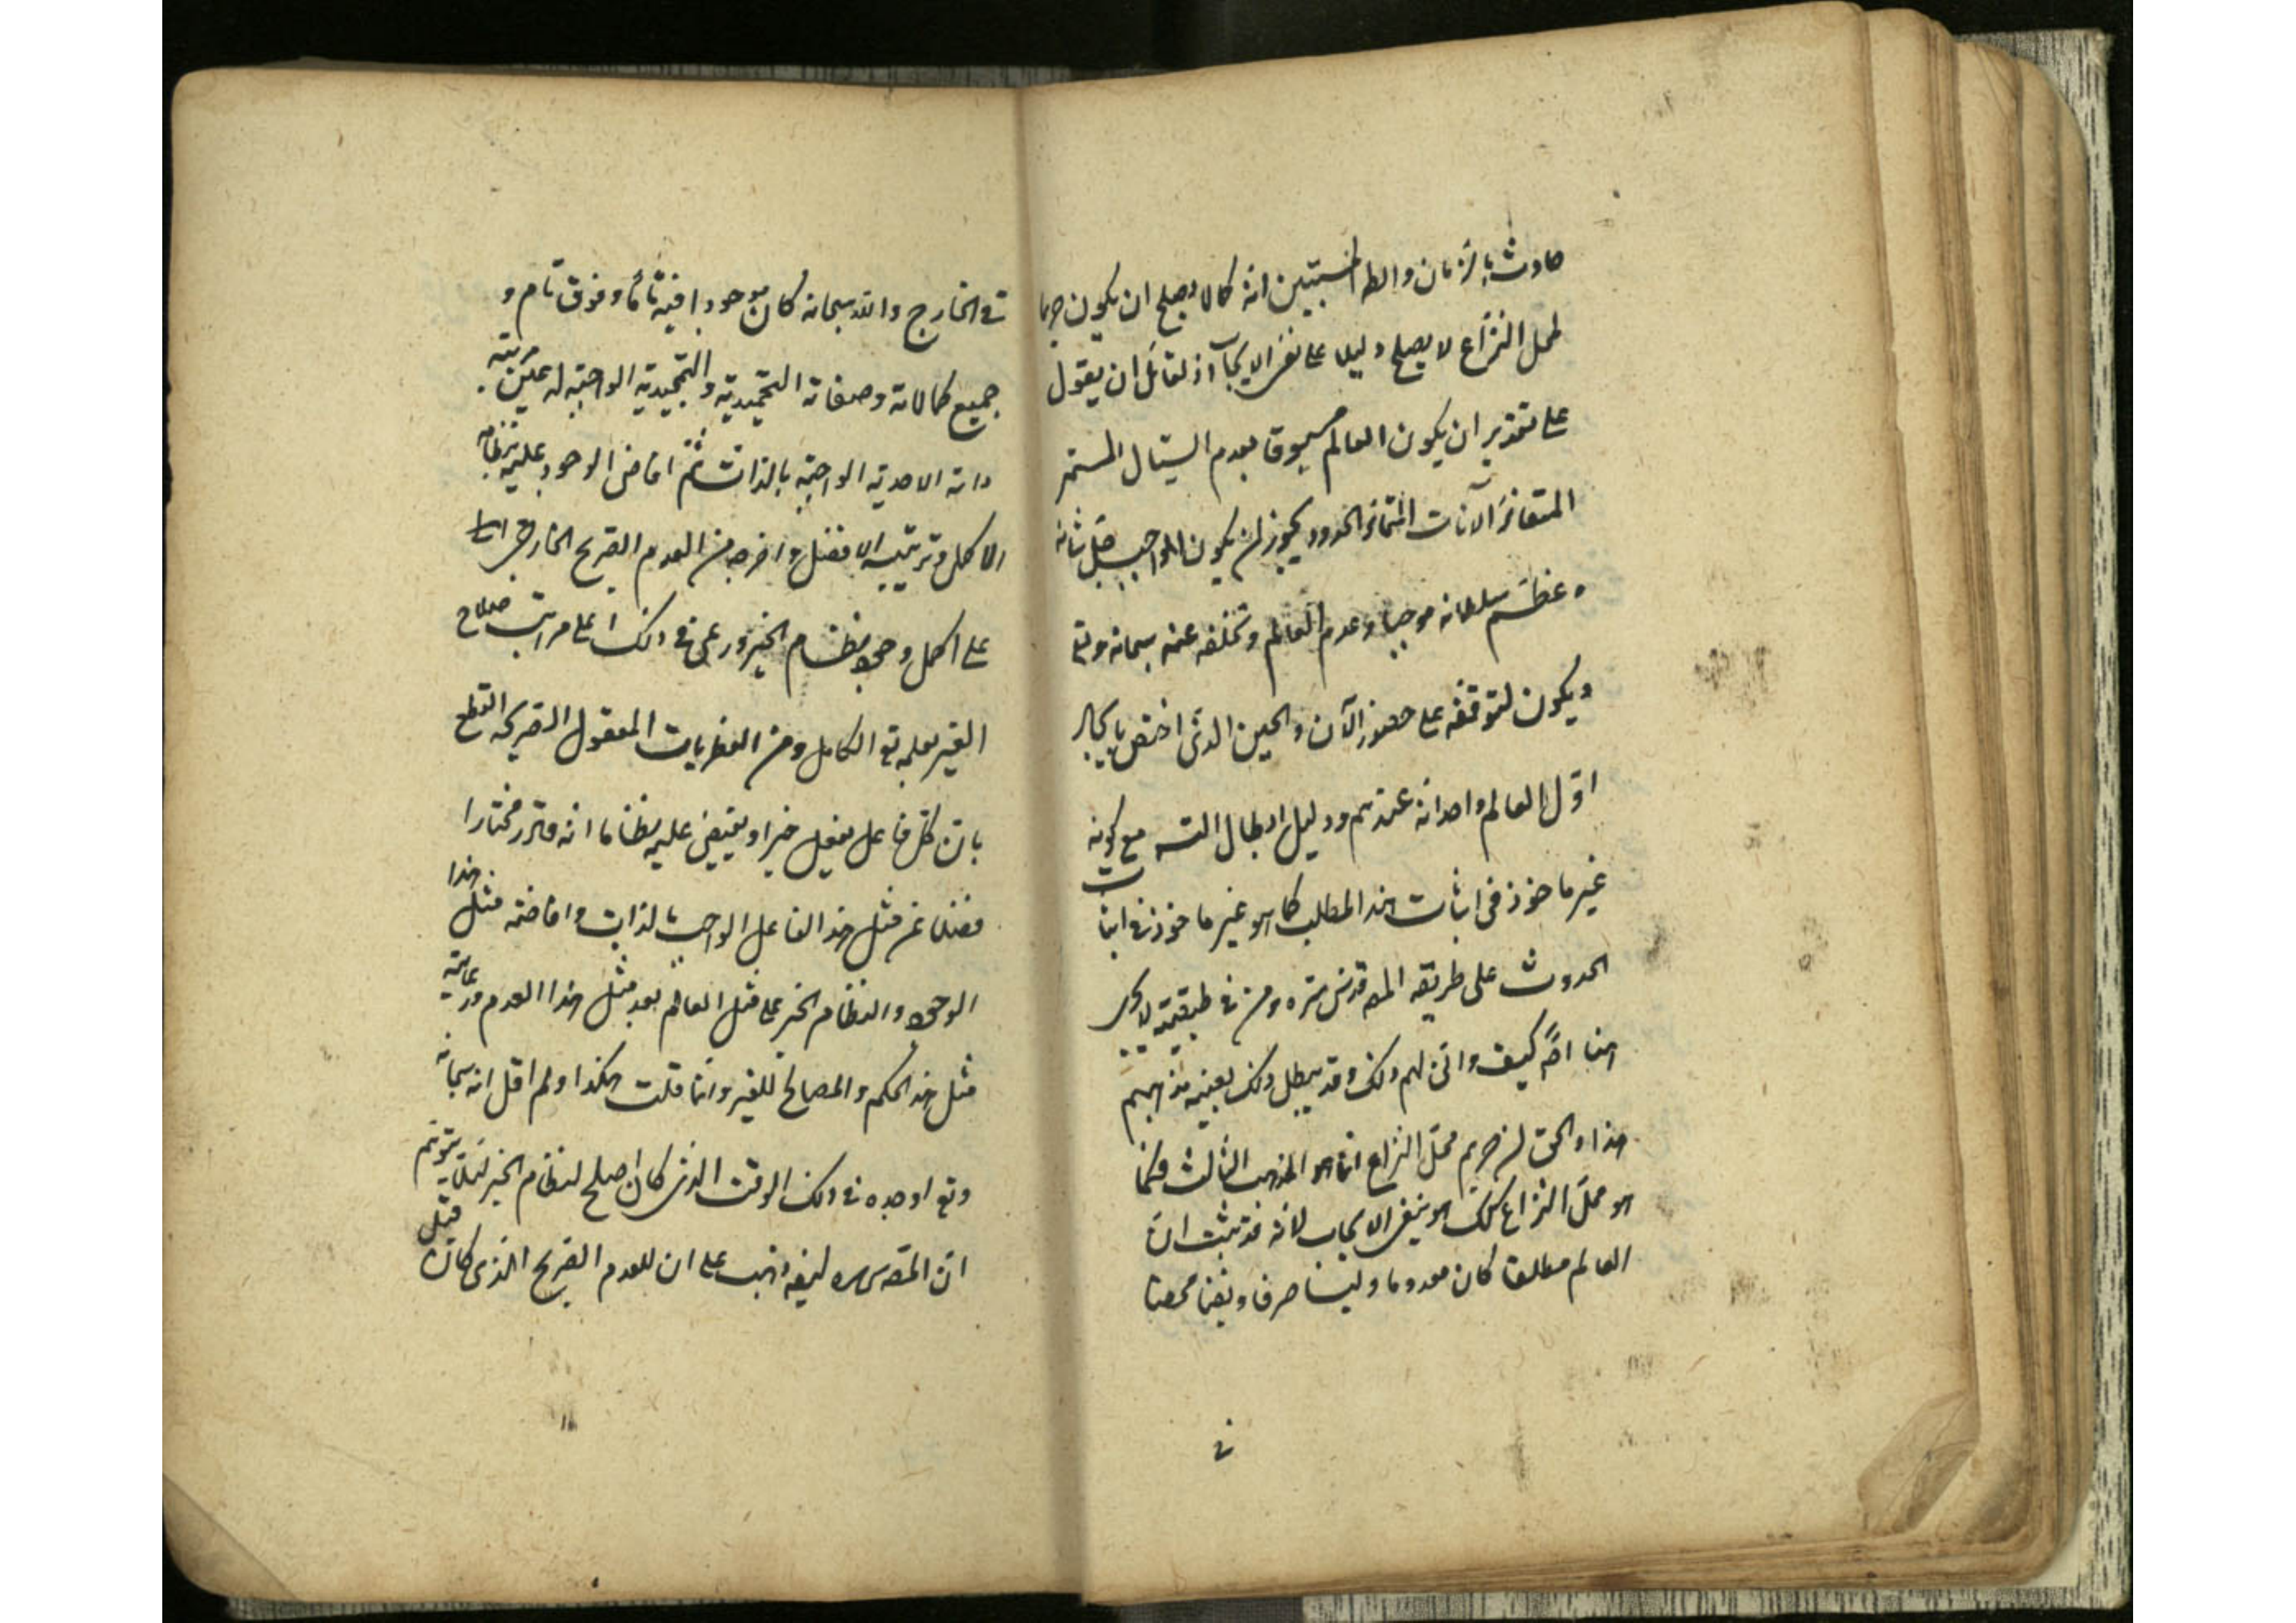 حادث بالزمان والظاهر انه كما لا يصلح ان يكون حريما
لمحل النزاع لا يصلح دليلا على نفى الايجاب اذ لقائل ان يقول
على تقدير ان يكون العالم مسبوقا بعدم السيال المستمر
الآنات الحدود يجوز ان يكون الواجب جل شانه
و عظم سلطانه موجبا وعدم العالم وتخلفه عنه سبحانه
ويكون لتوقفه على حضور الآن والحين الذى اختص بايجاد
اول العالم واحداثه عندهم ودليل ابطال التسـ مع كونه
غير ماخوذ فى اثبات هذا المطلب كما هو غير ماخوذ فى اثبات
الحدوث على طريقه المصـ قدس سره ومن فى طبقته لا يجرى
هنا اصلا كيف وانى لهم ذلك وقد يبطل ذلك بعينه مذهبهم
هذا والحق ان حريم محل النزاع انما هو المذهب الثالث فكما
هو محل النزاع كذلك هو ينفى الايجاب لانه قد ثبت ان
العالم مطلقا كان معدوما وليسا صرفا ونفيا محضا
فى
فى الخارج والله سبحانه كان موجودا فيه تاما وفوق تام و
جميع كمالاته وصفاته التحميدية والتمجيدية الواجبة له عين مرتبة
ذاته الاحدية الواجبة بالذات ثم افاض الوجود عليه بنظامه
الاكمل وترتيبه الافضل واخرجه من العدم الصريح الخارجى
على اكمل وجوه نظام الخير ورعى فى ذلك اعلى مراتب صلاح
الغير بعلمه تع الكامل ومن الفطريات العقول الصريحه القطع
بان كل فاعل يفعل خيرا ويفيض عليه نظاما انه قادر مختارا
فضلا عن مثل هذا الفاعل الواجب بالذات وافاضته مثل هذا
الوجود والنظام الخير على مثل العالم بعد مثل هذا العدم ورعايته
مثل هذا الحكم والمصالح للغير وانما قلت هكذا ولم اقل انه سبحانه
وتع اوجده فى ذلك الوقت الذى كان اصلح لنظام الخير لئلا يتوهم
ان المصـ ذهب على ان للعدم الصريح الذى كان قبل